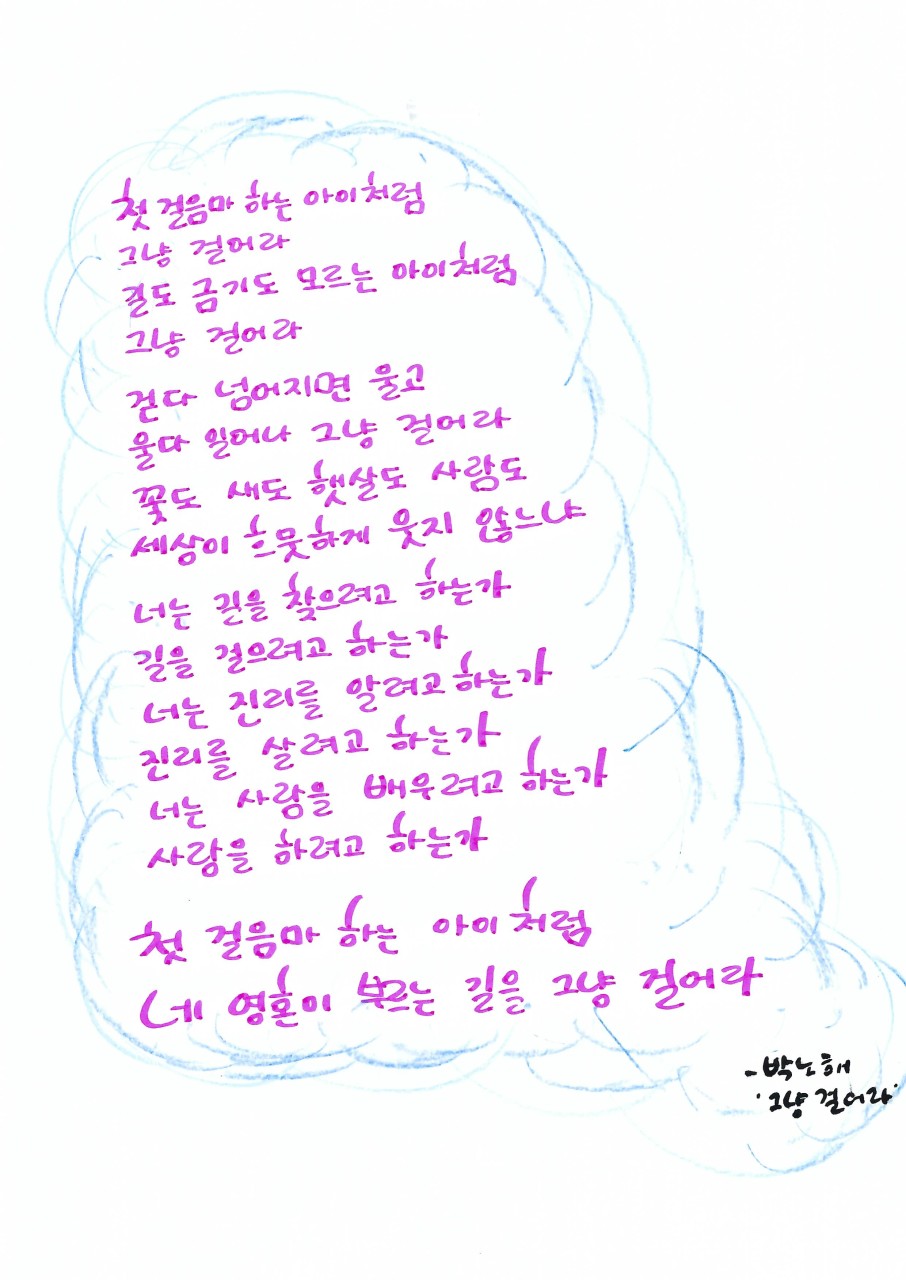 첫 걸음마 하는 아이처럼
그냥 걸어라
길도 금기도 모르는 아이처럼
그냥 걸어라
걷다 넘어지면 울고
울다 일어나 그냥 걸어라
꽃도 새도 햇살도 사람도
세상이 흐뭇하게 웃지 않느냐
너는 길을 찾으려고 하는가
길을 걸으려고 하는가
너는 진리를 알려고 하는가
진리를 살려고 하는가
너는 사람을 배우려고 하는가
사랑을 하려고 하는가
첫 걸음마 하는 아이처럼
네 영혼이 부르는 길을 그냥 걸어라
- 박노해
'그냥 걸어라'